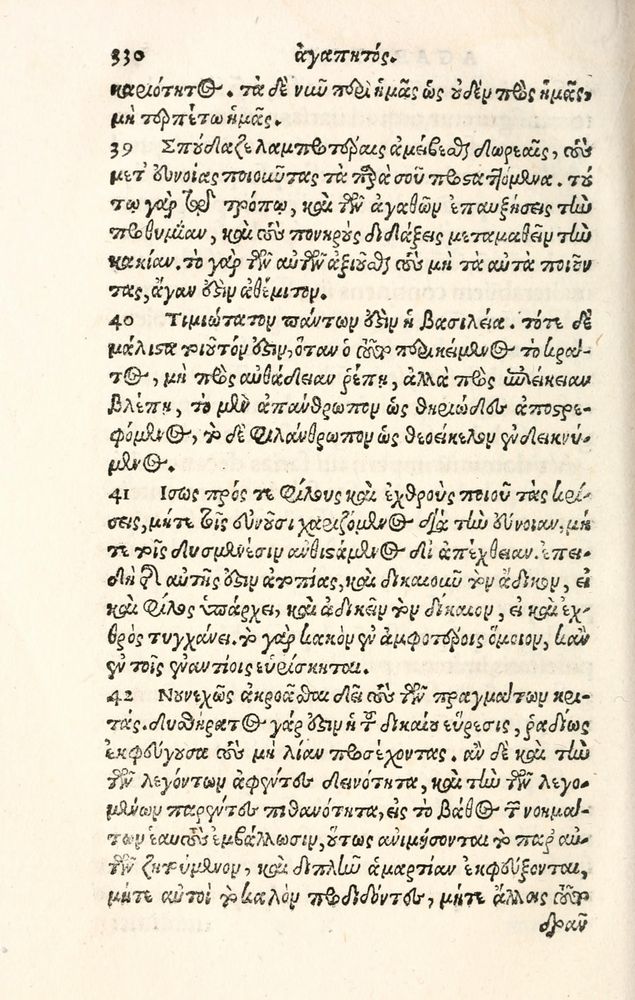 330 ἀγαπητός.
καριότητος. τὰ δὲ νῦν περὶ ἡμᾶς ὡς οὐδὲν πρὸς ἡμᾶς,
μὴ τερπέτω ἡμᾶς.
39 Σπούδαζε λαμπροτέραις ἀμείβεσθαι δωρεαῖς, τοὺς
μετ' εὐνοίας ποιοῦντας τὰ παρὰ σοῦ προσταττόμενα. τού
τῳ γὰρ τῷ τρόπῳ, καὶ τῶν ἀγαθῶν ἐπαυξήσεις τὴν
προθυμίαν, καὶ τοὺς πονηροὺς διδάξεις μεταμαθεῖν τὴν
κακίαν. τὸ γὰρ τῶν αὐτῶν ἀξιοῦσθαι τοὺς μὴ τὰ αὐτὰ ποιοῦν
τας, ἄγαν ἐστὶν ἀθέμιτον.
40 Τιμιώτατον πάντων ἐστὶν ἡ βασιλεία. τότε δὲ
μάλιστα τοιοῦτόν ἐστιν, ὅταν ὁ τοῦτο περικείμενος τὸ κρά-
τος, μὴ πρὸς αὐθάδειαν ῥέπῃ, ἀλλὰ πρὸς ἐπιείκειαν
βλέπῃ, τὸ μὲν ἀπάνθρωπον ὡς θηριῶδες ἀποστρε-
φόμενος, τὸ δὲ φιλάνθρωπον ὡς θεοείκελον ἐνδεικνύ-
μενος.
41 Ἴσως πρός τε φίλους καὶ ἐχθροὺς ποιοῦ τὰς κρί-
σεις, μήτε τοῖς εὐνοῦσι χαριζόμενος διὰ τὴν εὔνοιαν, μή
τε τοῖς δυσμενέσιν ἀνθιστάμενος δι' ἀπέχθειαν. ἐπει-
δὴ τῆς αὐτῆς ἐστιν ἀτοπίας, καὶ δικαιοῦν τὸν ἄδικον, εἰ
καὶ φίλος ὑπάρχει, καὶ ἀδικεῖν τὸν δίκαιον, εἰ καὶ ἐχ-
θρὸς τυγχάνει. τὸ γὰρ κακὸν ἐν ἀμφοτέροις ὅμοιον, κἂν
ἐν τοῖς ἐναντίοις εὑρίσκηται.
42 Νουνεχῶς ἀκροᾶσθαι δεῖ τοὺς τῶν πραγμάτων κρι-
τάς. δυσθήρατος γάρ ἐστιν ἡ τοῦ δικαίου εὕρεσις, ῥᾳδίως
ἐκφεύγουσα τοὺς μὴ λίαν προσέχοντας. ἂν δὲ καὶ τὴν
τῶν λεγόντων ἀφέντες δεινότητα, καὶ τὴν τῶν λεγο-
μένων παρέντες πιθανότητα, εἰς τὸ βάθος τῶν νοημά-
των ἑαυτοὺς ἐμβάλλωσιν, οὕτως ἀνιμήσονται τὸ παρ' αὐ-
τῶν ζητούμενον, καὶ διπλῆν ἁμαρτίαν ἐκφεύξονται,
μήτε αὐτοὶ τὸ καλὸν προδιδόντες, μήτε ἄλλοις τοῦτο
δρᾶν